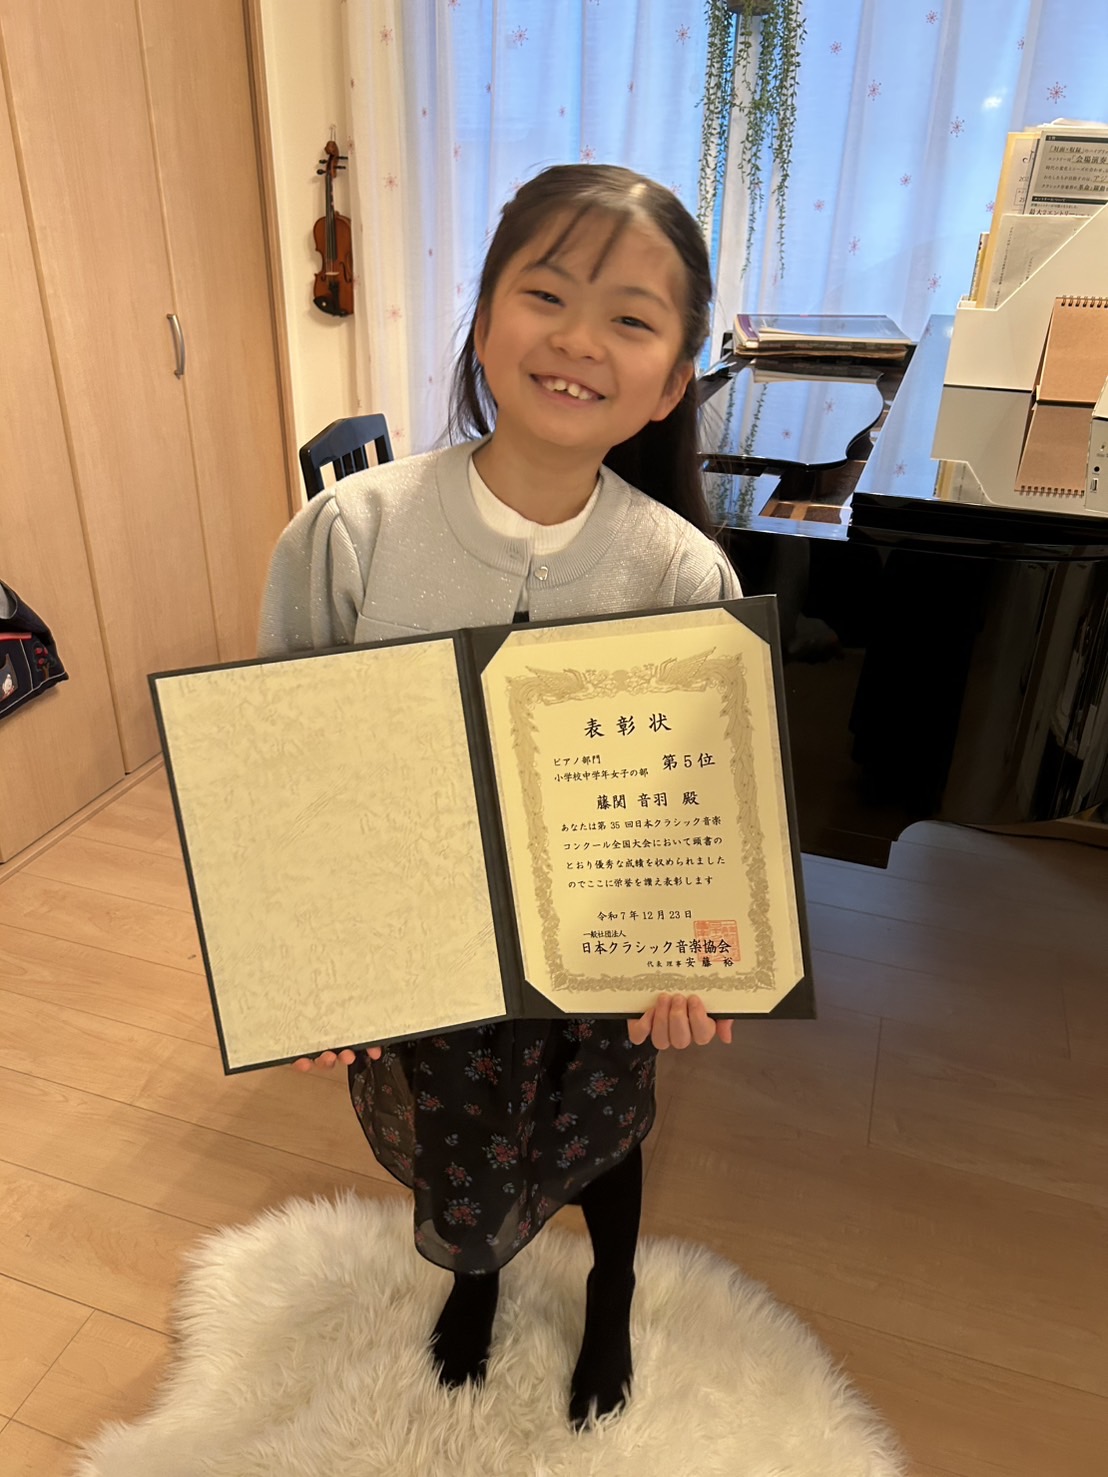 表彰状
ピアノ部門
小学校中学年女子の部 第5位
藤関 音羽 殿
あなたは第35回日本クラシック音楽
コンクール全国大会において頭書の
とおり優秀な成績を収められました
のでここに栄誉を讃え表彰します
令和7年12月23日
一般社団法人
日本クラシック音楽協会
代表理事 安藤 裕